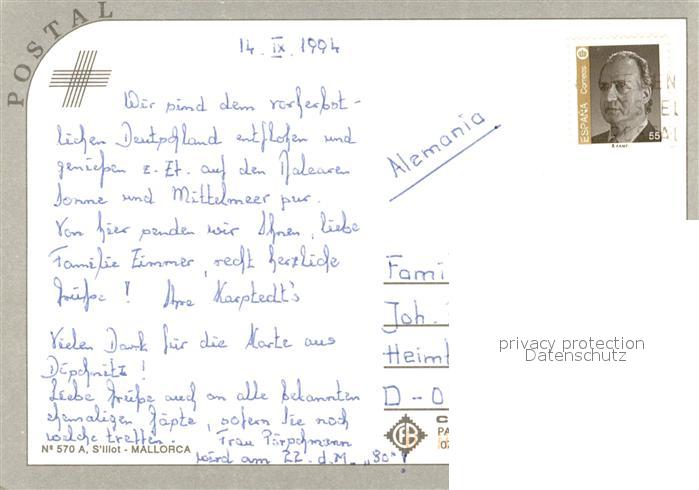 POSTAL
14. IX. 1994
Wir sind dem vorherbst-
lichen Deutschland entflohen und
genießen z. Zt. auf den Balearen
Sonne und Mittelmeer pur.
Von hier senden wir Ihnen, liebe
Familie Zimmer, recht herzliche
Grüße! Ihre Karstedt's
Vielen Dank für die Karte aus
Liebe Grüße auch an alle bekannten
ehemaligen Gäste, sofern Sie noch
welche treffen. Frau Pürschmann
wird am 22. d.M. „80"!
Nº 570 A, S'Illot - MALLORCA
ESPAÑA Correos
55
Alemania
Fami
Joh.
Heim
D-0
privacy protection
Datenschutz